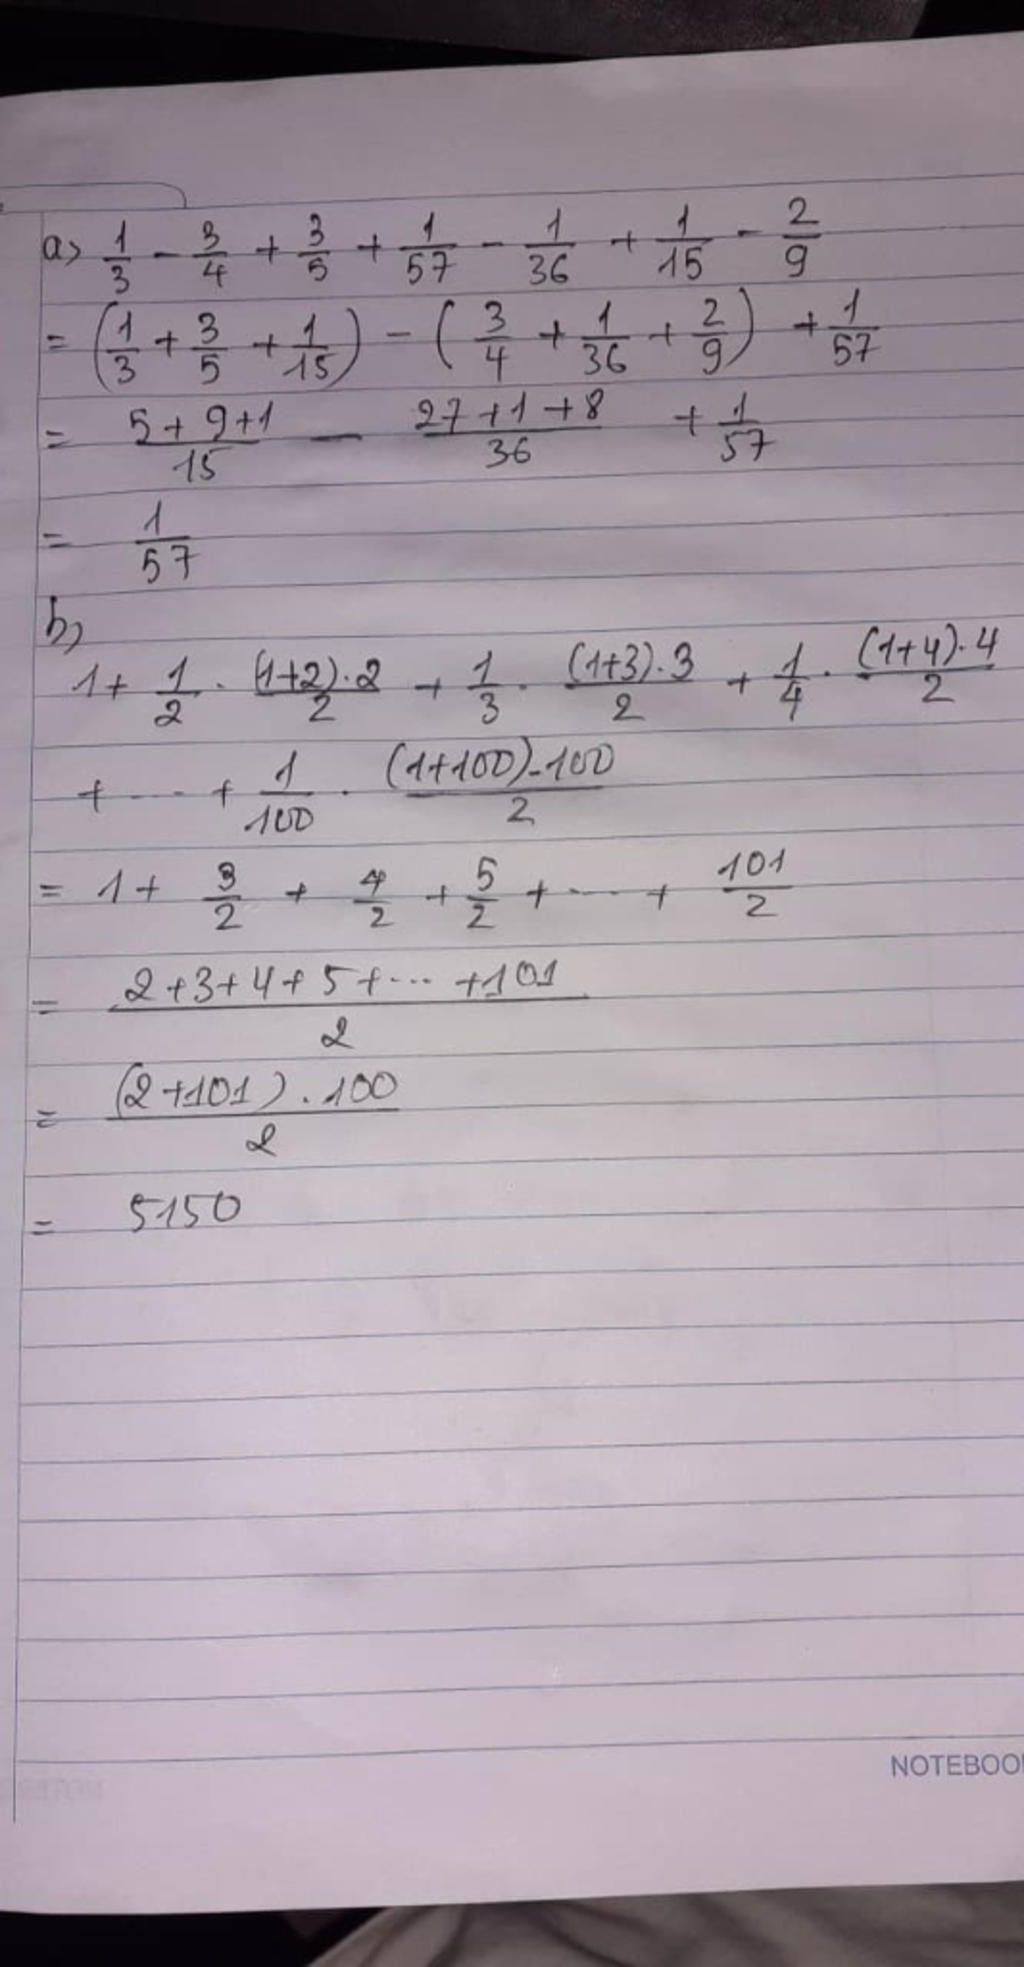 a) 1/3 - 3/4 + 3/5 + 1/57 - 1/36 + 1/15 - 2/9
= (1/3 + 3/5 + 1/15) - (3/4 + 1/36 + 2/9) + 1/57
= (5+9+1)/15 - (27+1+8)/36 + 1/57
= 1/57
b)
1 + 1/2 . (1+2).2/2 + 1/3 . (1+3).3/2 + 1/4 . (1+4).4/2
+ ... + 1/100 . (1+100).100/2
= 1 + 3/2 + 4/2 + 5/2 + ... + 101/2
= (2+3+4+5+... +101)/2
= (2+101).100/2
= 5150
NOTEBOO